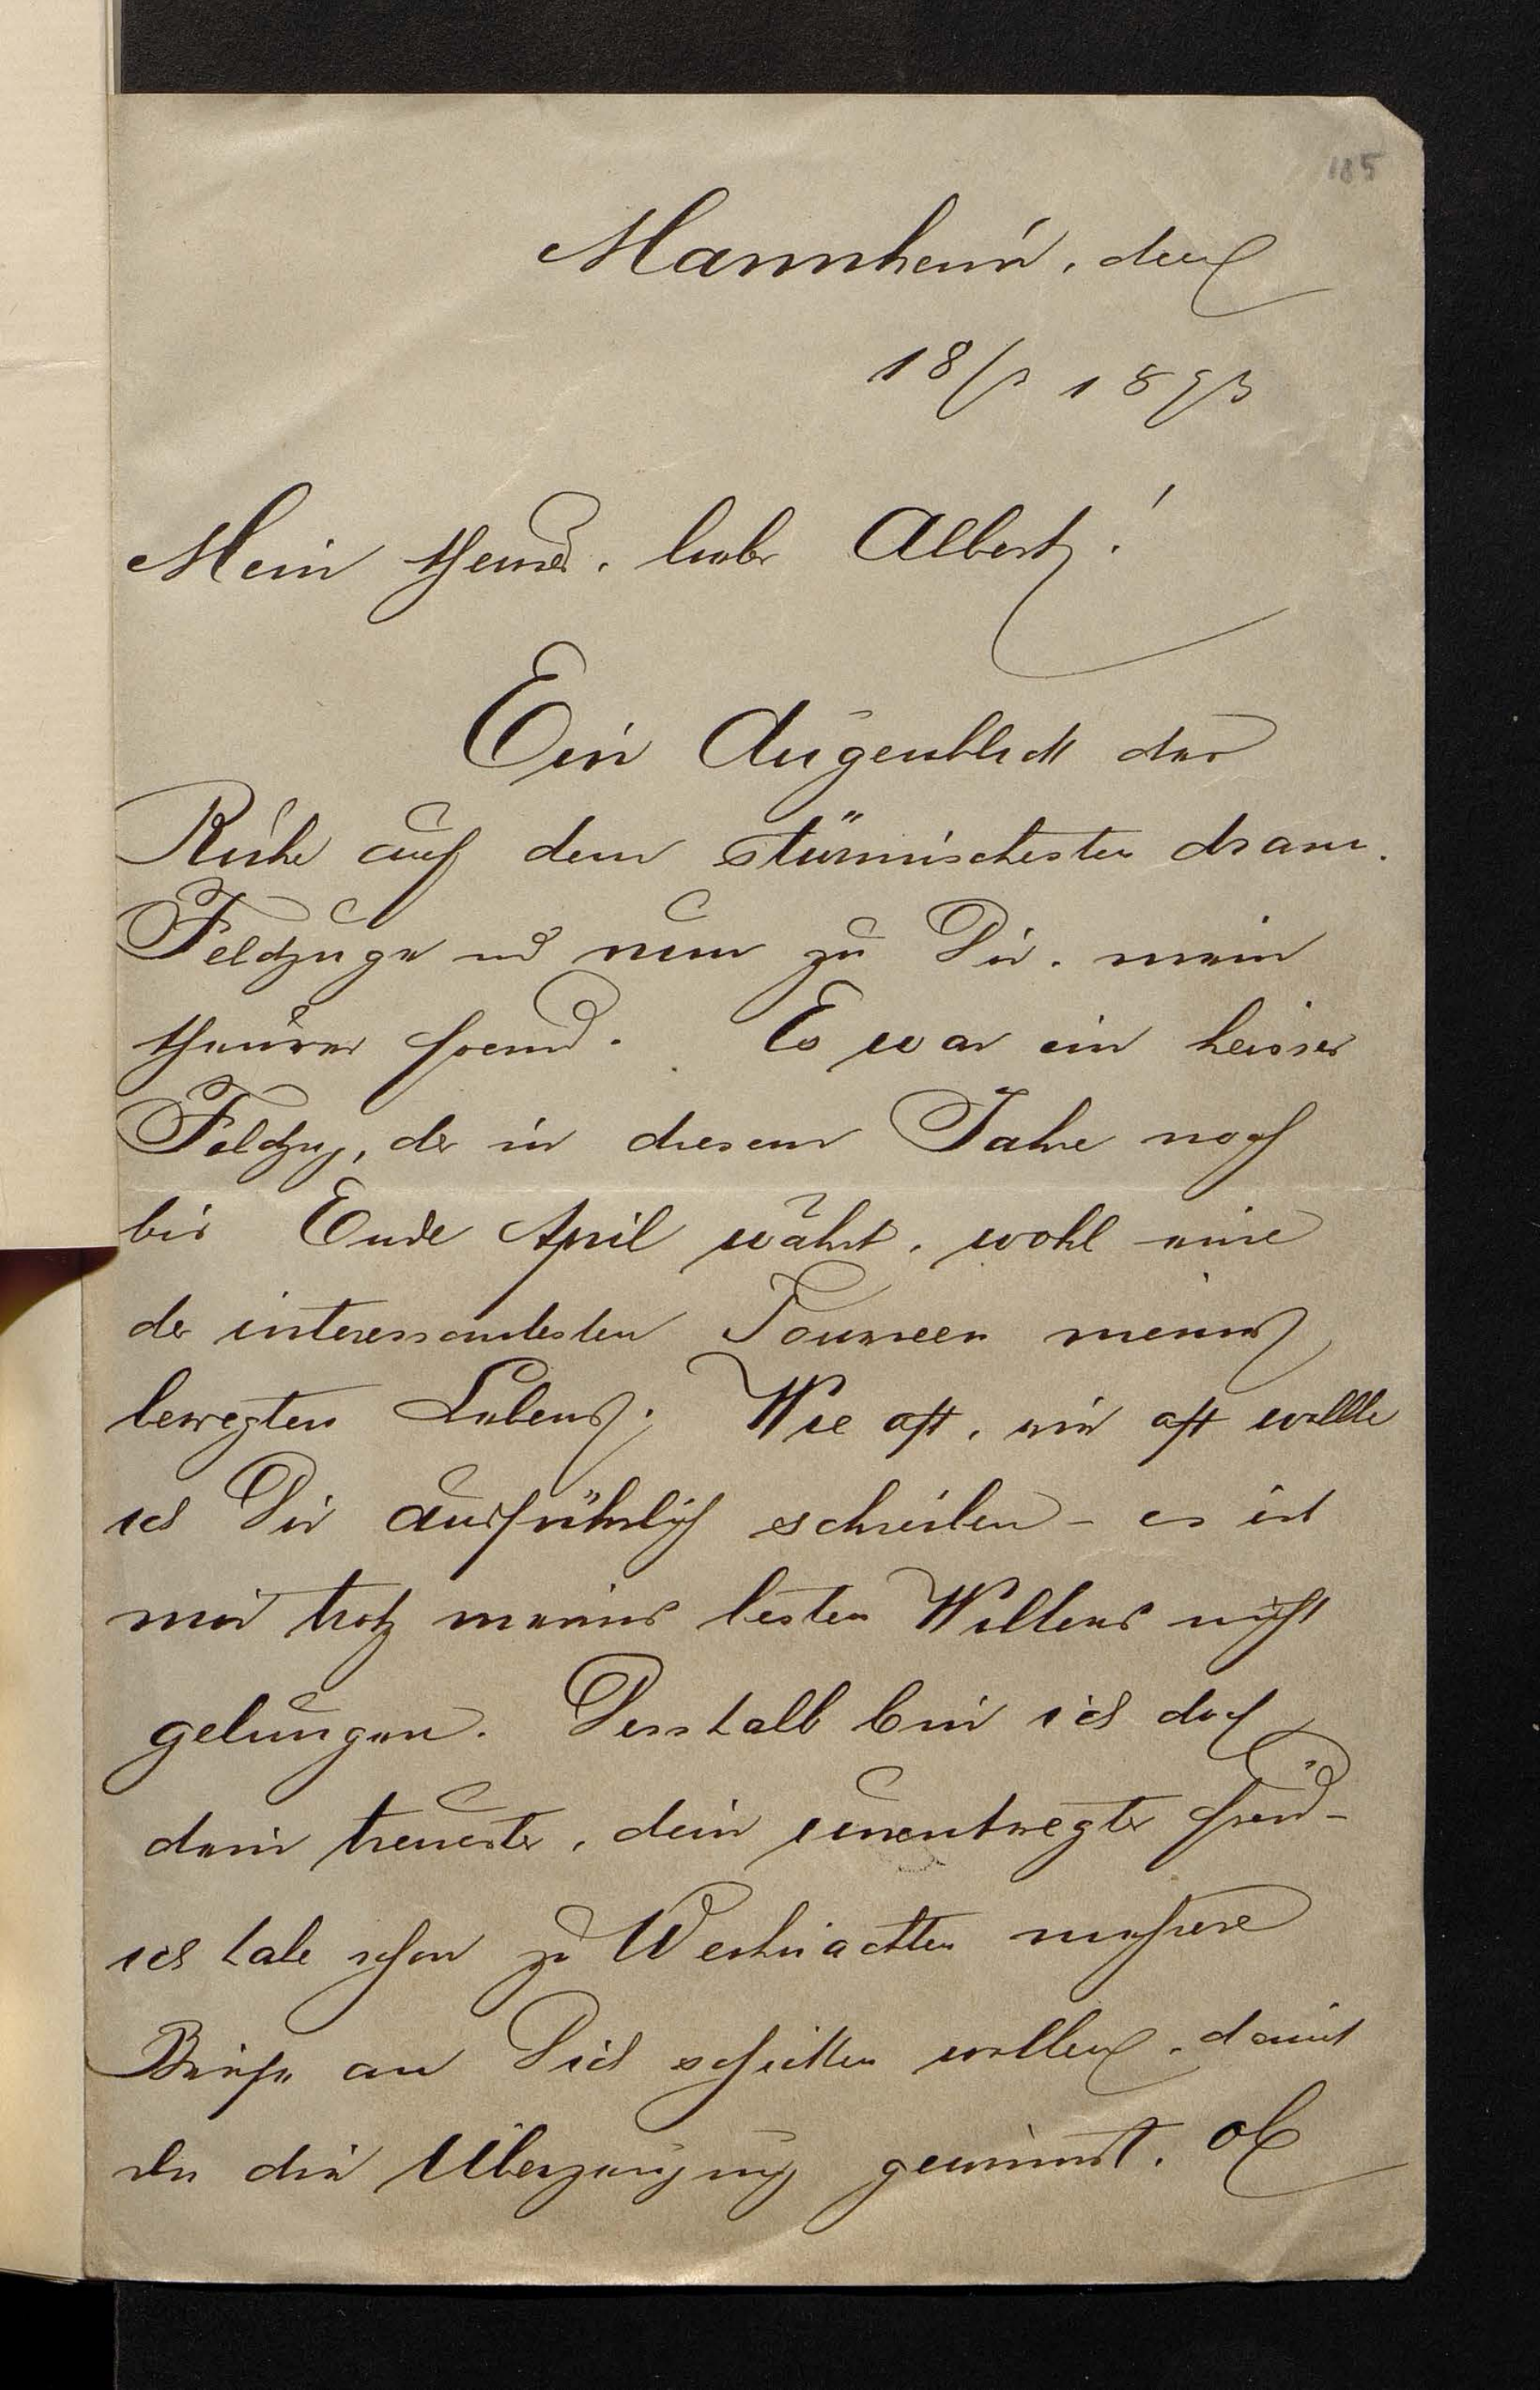 185
Mannheim, den
18/3 1893
Mein theurer, lieber Albert!
Ein Augenblick der
Ruhe auf dem stürmischesten dram.
Feldzuge und nun zu Dir, mein
theurer Freund. Es war ein heisser
Feldzug, der in diesem Jahre noch
bis Ende April währt, wohl eine
der interessantesten Tourneen meines
bewegten Lebens. Wie oft, wie oft wollte
ich Dir ausführlich schreiben - es ist
mir trotz meines besten Willens nicht
gelungen. Desshalb bin ich doch
dein treuester, dein unentwegter Freund -
ich habe schon zu Weihnachten mehrere
Briefe an Dich schicken wollen, damit
du die Überzeugung gewinnst. Ob